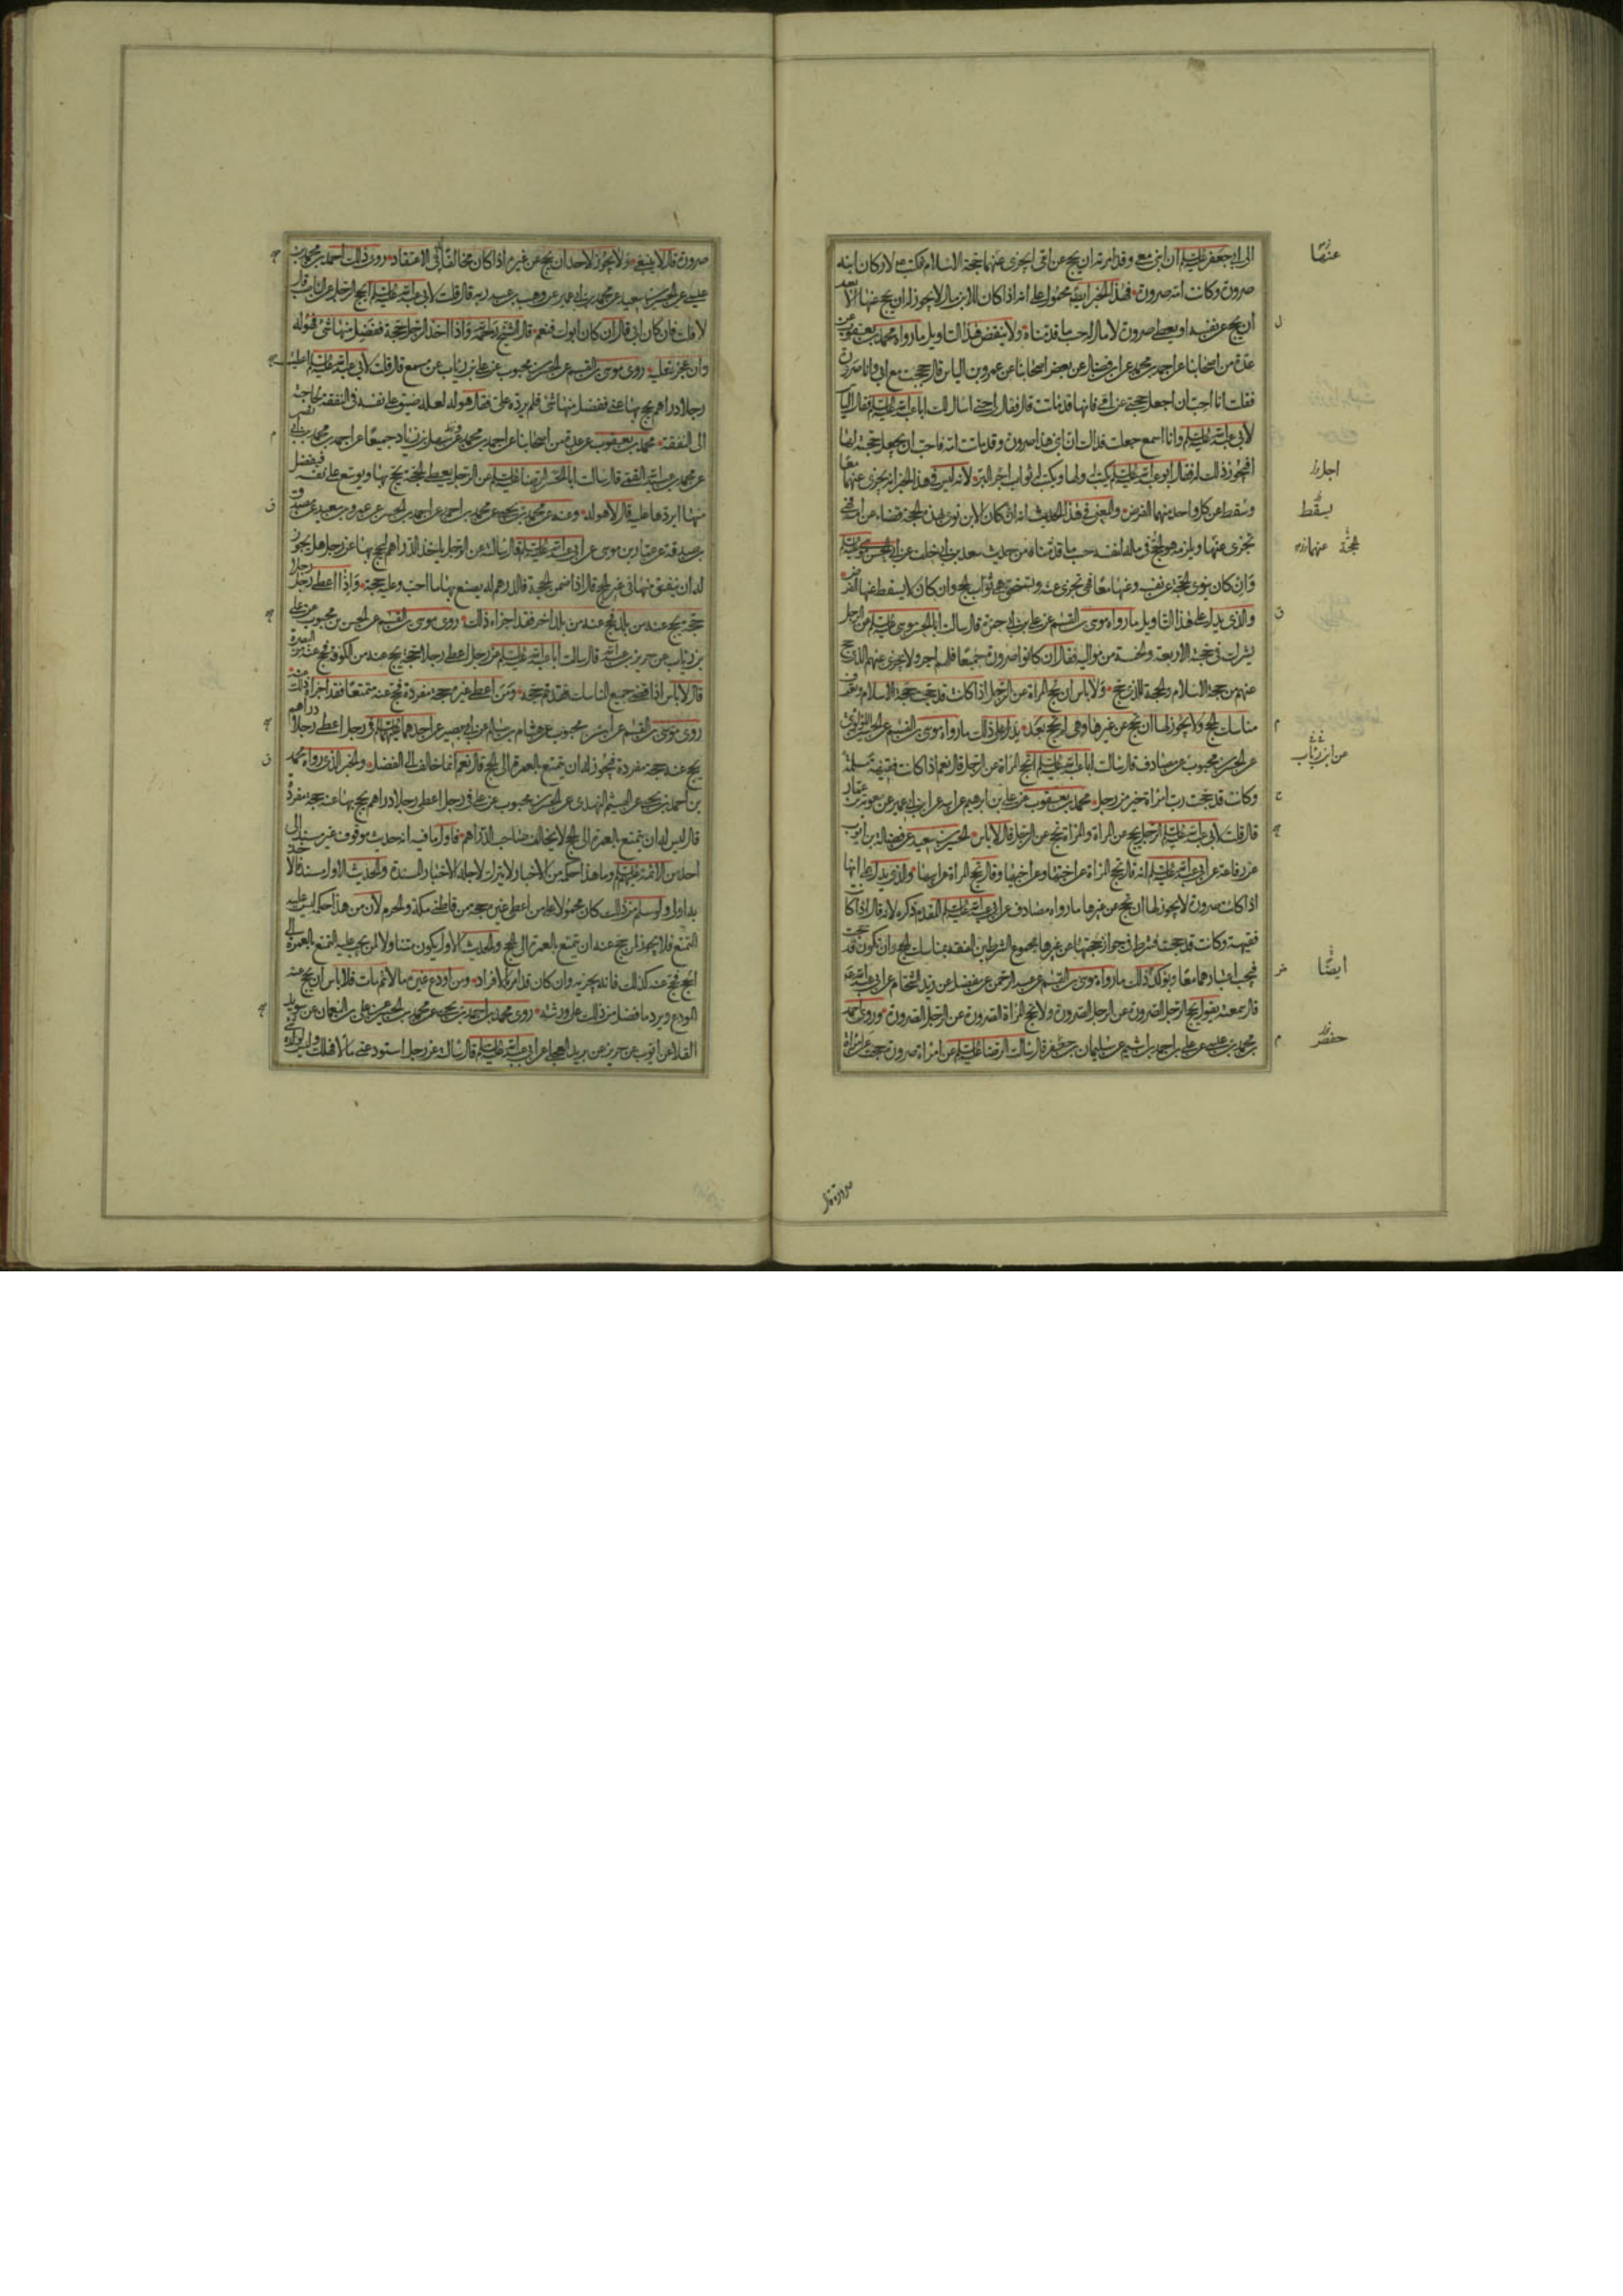 الى ابي جعفر عليه السلام ان ابني معي وقد امرته ان يحج عن امي ايجزي عنها حجة الاسلام فكتب لا وكان ابنه
صرورة وكانت امه صرورة فهذا الخبر ايضا محمول على انه اذا كان للابن مال لا يجوز له ان يحج عنها الا بعد
ان يحج عن نفسه او يعطي صرورة لا مال له حسب ما قدمناه ولا ينقض هذا التاويل ما رواه محمد بن يعقوب عن
عدة من اصحابنا عن احمد بن محمد عن ابن فضال عن بعض اصحابنا عن عمرو بن الياس قال حججت مع ابي وانا صرورة
فقلت انا احب ان اجعل حجتي عن امي فانها قد ماتت قال فقال لي حتى اسال لك ابا عبد الله عليه السلام فقال الياس
لابي عبد الله عليه السلام وانا اسمع جعلت فداك ان ابني هذا صرورة وقد ماتت امه فاحب ان يجعل حجته لها
افيجوز ذلك له فقال ابو عبد الله عليه السلام يكتب له ولها ويكتب له ثواب اجر البر لانه ليس في هذا الخبر انه يجزي عنهما معا
وسقط عن كل واحد منهما الفرض والمعنى في هذا الحديث انه ان كان الابن نوى بهذه الحجة قضاء عن امه فهي
تجزي عنها ويلزمه هو الحج في ماله لنفسه حسب ما قدمناه من حديث سعد بن ابي خلف عن ابي الحسن موسى عليه السلام
وان كان ينوي الحجة عن نفسه وعنها معا فهي تجزي عنه وتستحق هي ثواب الحج وان كان لا يسقط عنها الفرض
والذي يدل على هذا التاويل ما رواه موسى بن القسم عن علي بن ابي حمزة قال سالت ابا الحسن موسى عليه السلام عن الرجل
يشرك في حجته الاربعة والخمسة من مواليه فقال ان كانوا صرورة جميعا فلهم اجر ولا يجزي عنهم الذي حج
عنهم من حجة الاسلام والحجة للذي حج ولا باس ان تحج المراة عن الرجل اذا كانت قد حجت حجة الاسلام وتعرف
مناسك الحج ولا يجوز لها ان تحج عن غيرها وهي لم تحج بعد يدل على ذلك ما رواه موسى بن القسم عن الحسن اللؤلؤي
عن الحسن بن محبوب عن مصادف قال سالت ابا عبد الله عليه السلام اتحج المراة عن الرجل قال نعم اذا كانت فقيهة مسلمة
وكانت قد حجت رب امراة خير من رجل محمد بن يعقوب عن علي بن ابراهيم عن ابيه عن ابن ابي عمير عن معوية بن عمار
قال قلت لابي عبد الله عليه السلام الرجل يحج عن المراة والمراة تحج عن الرجل قال لا باس الحسين بن سعيد عن فضالة بن ايوب
عن رفاعة عن ابي عبد الله عليه السلام انه قال تحج المراة عن اختها وعن اخيها وقال تحج المراة عن ابيها والذي يدل على انها
اذا كانت صرورة لا يجوز لها ان تحج عن غيرها ما رواه مصادف عن ابي عبد الله عليه السلام المقدم ذكره لانه قال اذا كانت
فقيهة وكانت قد حجت فشرط في جواز حجتها عن غيرها مجموع الشرطين الفقه بمناسك الحج وان تكون قد حجت
فيجب اعتبارهما معا ويؤكد ذلك ما رواه موسى بن القسم عن عبد الرحمن عن مفضل عن زيد الشحام عن ابي عبد الله عليه السلام
قال سمعته يقول يحج الرجل الصرورة عن الرجل الصرورة ولا تحج المراة الصرورة عن الرجل الصرورة وروى احمد
بن محمد بن عيسى عن علي بن احمد بن اشيم عن سليمان بن جعفر قال سالت الرضا عليه السلام عن امراة صرورة حجت عن امراة
عنهما
يسقط
عن ابن رئاب
ايضا
صرورة قال
صرورة قال لا ينبغي ولا يجوز لاحد ان يحج عن غيره اذا كان مخالفا له في الاعتقاد روى ذلك احمد بن محمد بن
عيسى عن الحسين بن سعيد عن محمد بن ابي عمير عن وهب بن عبد ربه قال قلت لابي عبد الله عليه السلام ايحج الرجل عن الناصب قال
لا قلت فان كان ابي قال ان كان ابوك فنعم قال الشيخ رحمه الله واذا اخذ الرجل حجة ففضل منها شئ فهو له
وان عجز فعليه روى موسى بن القسم عن الحسن بن محبوب عن علي بن رئاب عن مسمع قال قلت لابي عبد الله عليه السلام اعطيت
رجلا دراهم يحج بها عني ففضل منها شئ فلم يرده علي فقال هو له لعله ضيق على نفسه في النفقة لحاجته
الى النفقة محمد بن يعقوب عن عدة من اصحابنا عن احمد بن محمد وسهل بن زياد جميعا عن احمد بن محمد بن ابي نصر
عن محمد بن عبد الله القمي قال سالت ابا الحسن الرضا عليه السلام عن الرجل يعطى الحجة يحج بها ويوسع على نفسه فيفضل
منها ايردها عليه قال لا هو له وعنه عن محمد بن يحيى عن محمد بن احمد عن احمد بن الحسن عن عمرو بن سعيد عن مصدق
بن صدقة عن عمار بن موسى عن ابي عبد الله عليه السلام قال سالته عن الرجل ياخذ الدراهم ليحج بها عن رجل هل يجوز
له ان ينفق منها في غير الحج قال اذا ضمن الحجة فالدراهم له يصنع بها ما احب وعليه حجة واذا اعطى رجل رجلا
حجة يحج عنه من بلد فحج عنه من بلد اخر فقد اجزاه ذلك روى موسى بن القسم عن الحسن بن محبوب عن علي
بن رئاب عن حريز بن عبد الله قال سالت ابا عبد الله عليه السلام عن رجل اعطى رجلا حجة يحج عنه من الكوفة فحج عنه من البصرة
قال لا باس اذا قضى جميع المناسك فقد تم حجه ومن اعطى غيره حجة مفردة فحج عنه متمتعا فقد اجزاه ذلك عنه
روى موسى بن القسم عن الحسن بن محبوب عن هشام بن سالم عن ابي بصير عن احدهما عليهما السلام في رجل اعطى رجلا دراهم
يحج عنه حجة مفردة فيجوز له ان يتمتع بالعمرة الى الحج قال نعم انما خالف الى الفضل والخبر الذي رواه محمد
بن احمد بن يحيى عن الهيثم النهدي عن الحسن بن محبوب عن علي في رجل اعطى رجلا دراهم يحج بها عنه حجة مفردة
قال ليس له ان يتمتع بالعمرة الى الحج لا يخالف صاحب الدراهم فاول ما فيه انه حديث موقوف غير مسند الى
احد من الائمة عليهم السلام وما هذا حكمه من الاخبار لا يترك لاجله الاخبار المسندة والحديث الاول مسند فالاخذ
به اولى ولو سلم من ذلك كان محمولا على من اعطى غيره حجة من قاطني مكة والحرم لان من هذا حكمه ليس عليه
التمتع فلا يجوز لمن يحج عنه ان يتمتع بالعمرة الى الحج والحديث الاول يكون متناولا لمن يجب عليه التمتع بالعمرة الى
الحج فحج عنه كذلك فانه يجزيه وان كان قد امره بالافراد ومن اودع غيره مالا ثم مات فلا باس ان يحج عنه
المودع ويرد ما فضل من ذلك على ورثته روى محمد بن احمد بن يحيى عن محمد بن الحسين عن علي بن النعمان عن سويد
القلا عن ايوب عن حريز عن بريد العجلي عن ابي عبد الله عليه السلام قال سالته عن رجل استودعني مالا فهلك وليس لولده